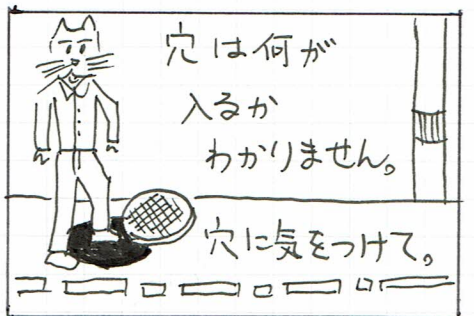 穴は何が
入るか
わかりません。
穴に気をつけて。